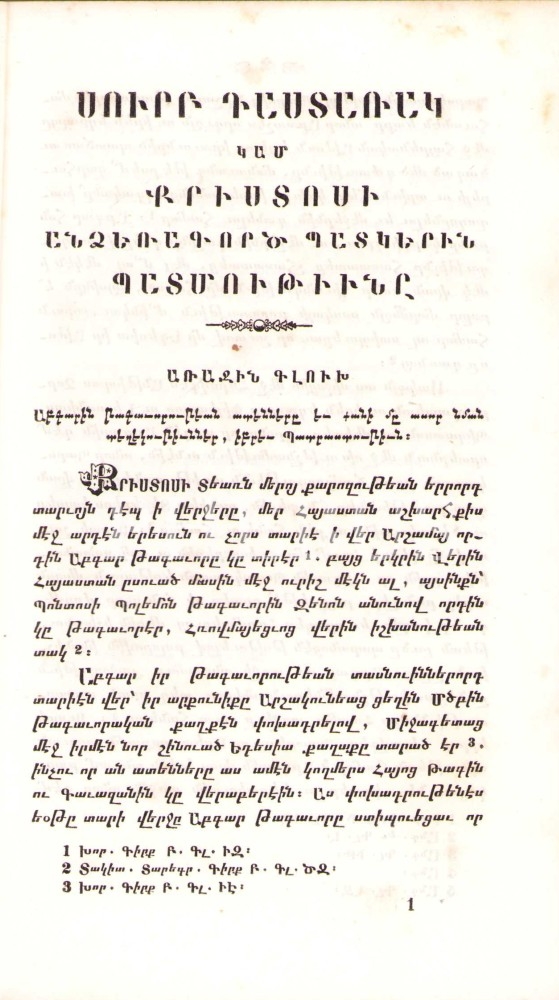 ՍՈՒՐԲ ԴԱՍՏԱՌԱԿ
ԿԱՄ
ՔՐԻՍՏՈՍԻ
ԱՆՁԵՌԱԳՈՐԾ ՊԱՏԿԵՐԻՆ
ՊԱՏՄՈՒԹԻՒՆԸ
ԱՌԱՋԻՆ ԳԼՈՒԽ
Աբգարին թագաւորութեան ատենները եւ քանի մը ասոր նման
տեղեկութիւններ, իբրեւ Պատրաստութիւն։
ՔՐԻՍՏՈՍԻ Տեառն մերոյ քարոզութեան երրորդ
տարւոյն դէպ ի վերջերը, մեր Հայաստան աշխարհքիս
մէջ արդէն երեսուն ու չորս տարիէ ի վեր Արշամայ որ-
դին Աբգար Թագաւորը կը տիրէր 1. բայց երկրին Վերին
Հայաստան ըսուած մասին մէջ ուրիշ մէկն ալ, այսինքն՝
Պոնտոսի Պոլեմոն Թագաւորին Զենոն անունով որդին
կը Թագաւորէր, Հռովմայեցւոց վերին իշխանութեան
տակ 2։
Աբգար իր Թագաւորութեան տասնուիններորդ
տարիէն վեր՝ իր արքունիքը Արշակունեաց ցեղին Մծբին
Թագաւորական քաղքէն փոխադրելով, Միջագետաց
մէջ իրմէն նոր շինուած Եդեսիա քաղաքը տարած էր 3.
ինչու որ ան ատենները աս ամէն կողմերս Հայոց Թագին
ու Գաւազանին կը վերաբերէին։ Աս փոխադրութենէս
եօթը տարի վերջը Աբգար Թագաւորը ստիպուեցաւ որ
1 Խոր. Գիրք Բ. Գլ. ԻԶ։
2 Տակիտ. Տարեգր. Գիրք Բ. Գլ. ԾԶ։
3 Խոր. Գիրք Բ. Գլ. ԻԷ։
1